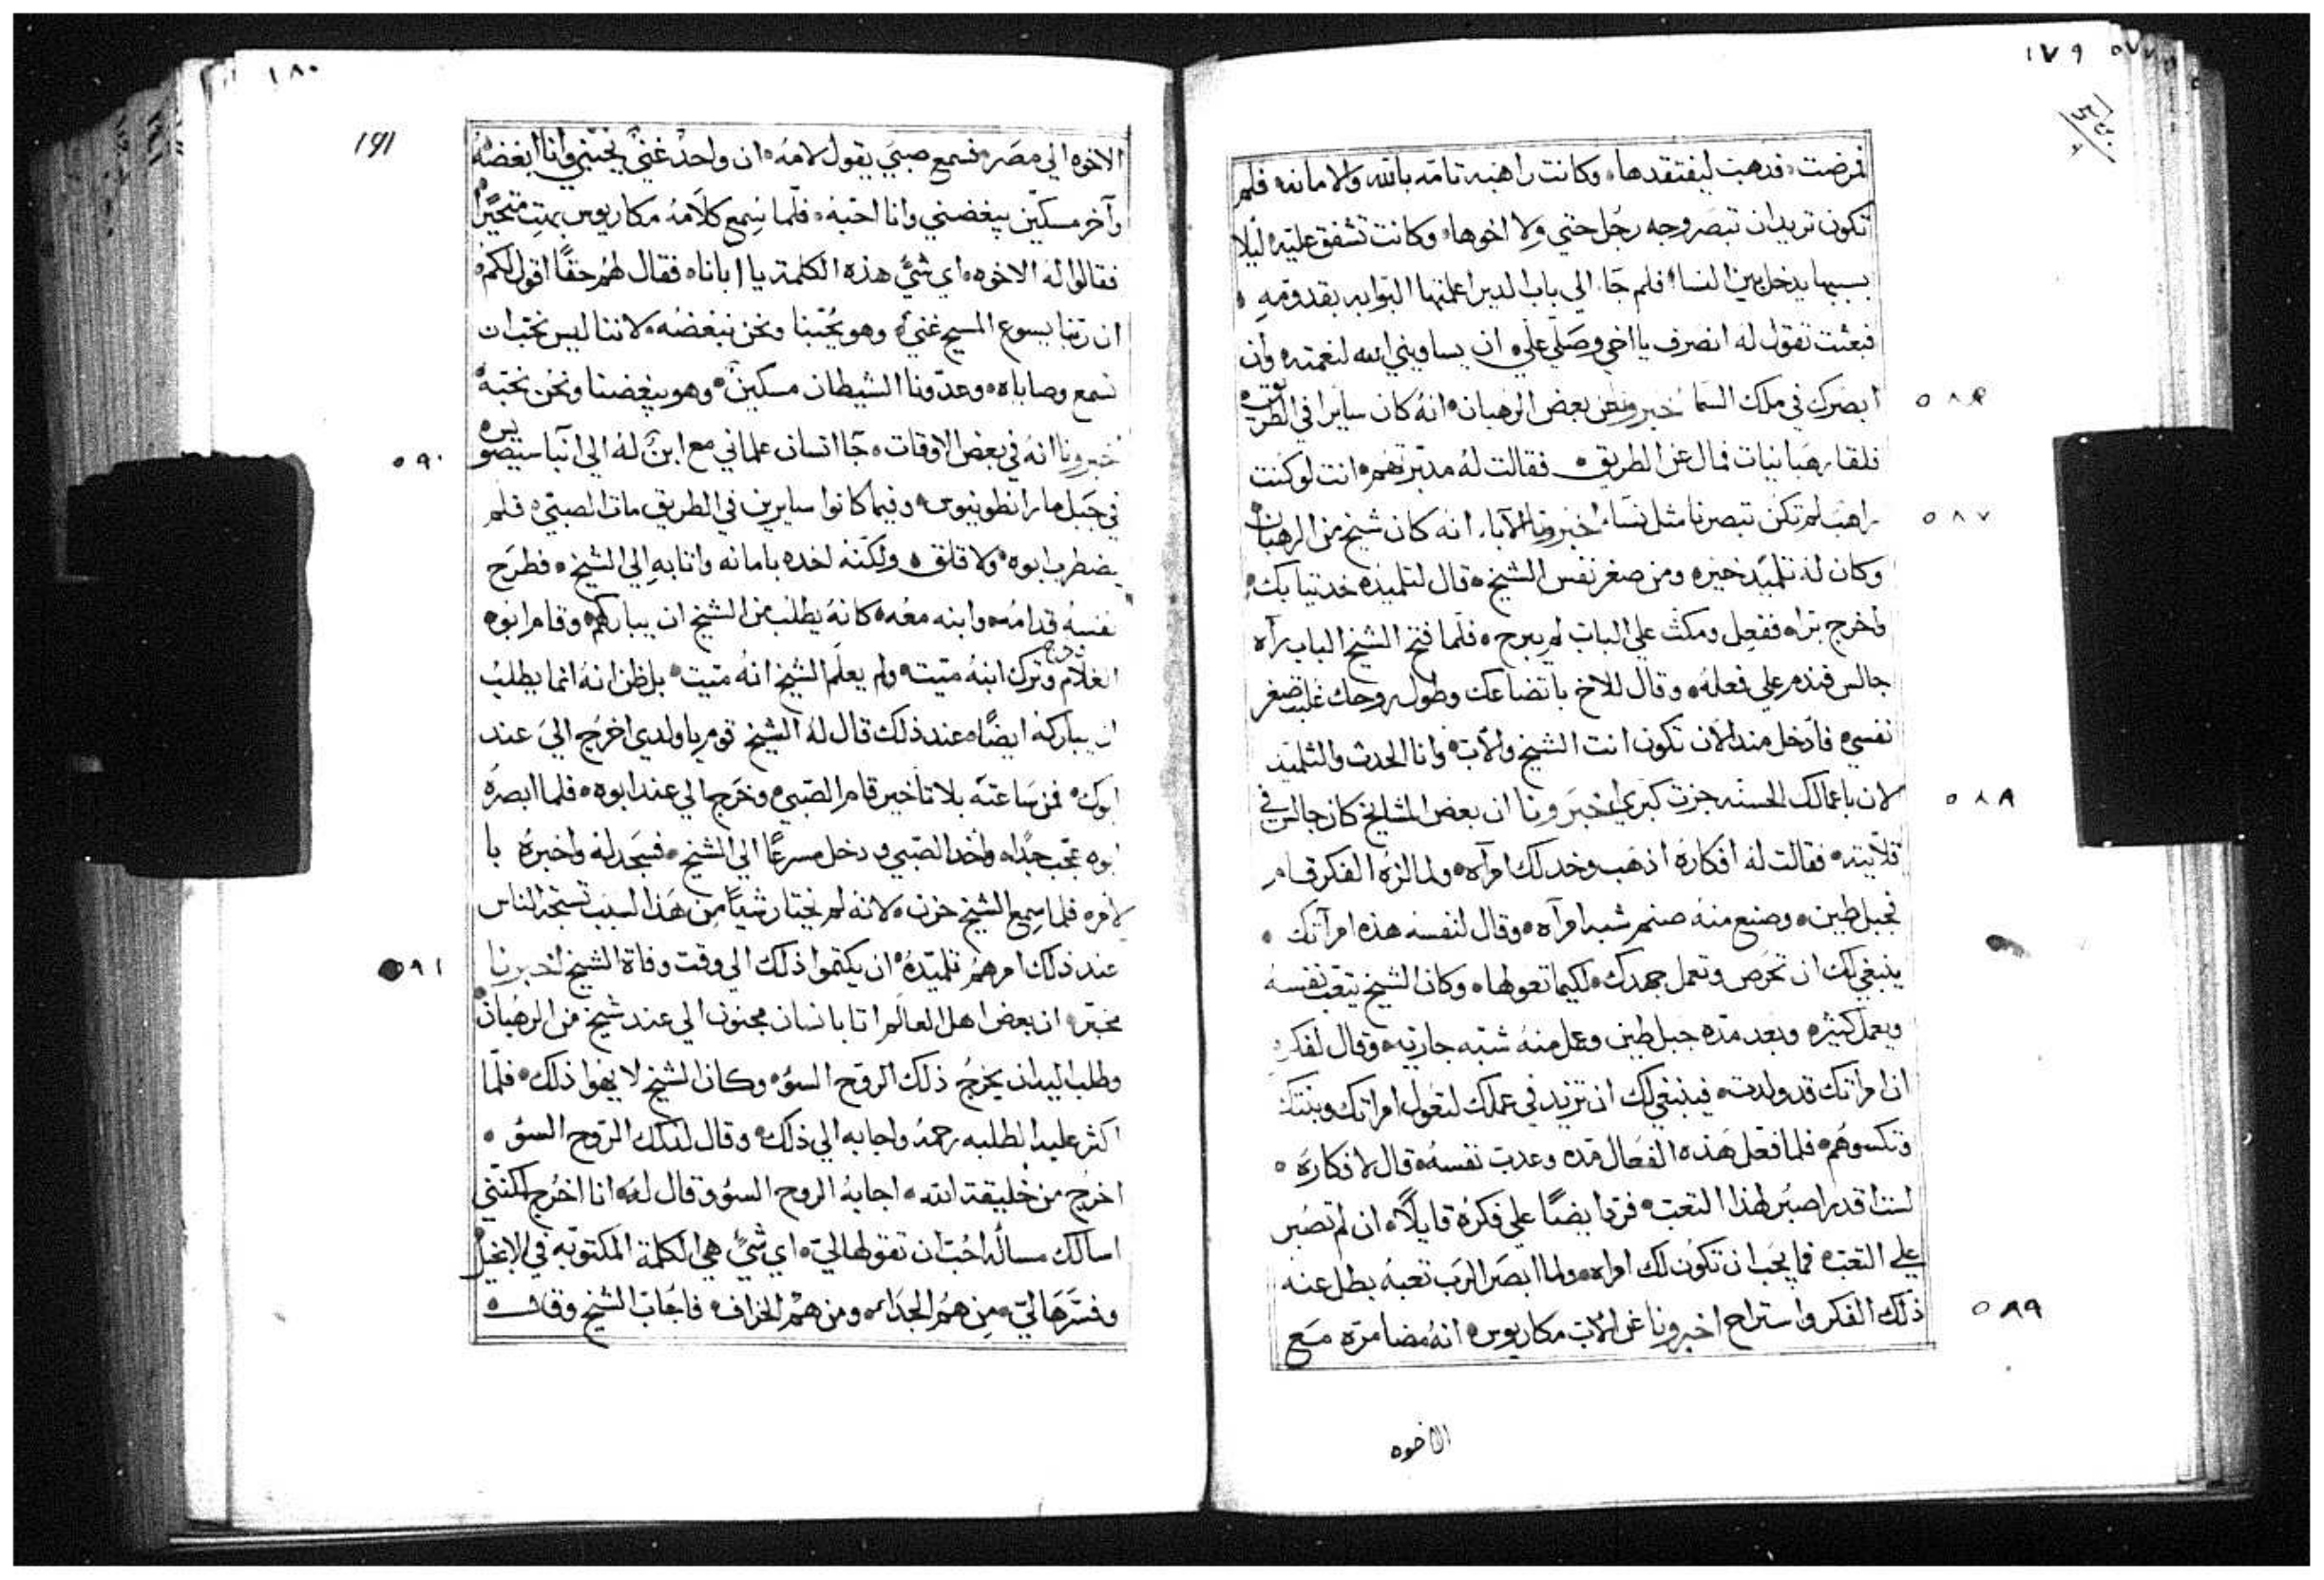 ١٧٩
فمرضت، فدهبت ليفتقدها، وكانت راهبه تامه بالله والامانه فلم
تكون تريد ان تبصر وجه رجل حتي ولا اخوها، وكانت تشفق عليه ليلا
بسببها يدخل بين النسا، فلم جا الي باب الدير اعلمتها البوابه بقدومه
فبعثت تقول له انصرف يا اخي وصلي علي ان يساويني الله لنعمته وان
ابصرك في ملك السما خبرونا عن بعض الرهبان انه كان سايرا في الطريق
فلقا رهبانيات فمال عن الطريق فقالت له مدبرتهم انت لو كنت
راهب لم تكن تبصرنا مثل نسا، اخبرونا الآبا، انه كان شيخ من الرهبان
٥٨٧
وكان له تلميد خيره ومن صغر نفس الشيخ، قال لتلميده خد تيابك
واخرج برا، ففعل ومكث علي الباب لم يبرح، فلما فتح الشيخ الباب رآه
جالس فندم علي فعله، وقال للاخ باتضاعك وطول روحك غلبت صغر
نفسي، فادخل مند الان تكون انت الشيخ والاب، وانا الحدث والتلميد
لان باعمالك الحسنه جزت كبري، اخبرونا ان بعض المشايخ كان جالس في
٥٨٨
قلايته، فقالت له افكاره ادهب وخد لك امرآه، ولما لزه الفكر قام
فجبل طين، وصنع منه صنم شبه امرآه، وقال لنفسه هذه امرآتك
ينبغي لك ان تحرص وتعمل جهدك، لكيما تعولها، وكان الشيخ يتعب نفسه
ويعمل كثيره وبعد مده جبل طين وعمل منه شبه جاريه، وقال لفكره
ان امراتك قد ولدت، فينبغي لك ان تزيد في عملك لتعول امراتك وبنتك
وتكسوهم، فلما فعل هذه الفعال مده وعدب نفسه، قال لافكاره
لست اقدر اصبر لهذا التعب، فرد ايضًا علي فكره قايلًا، ان لم تصبر
علي التعب، فما يجب ان تكون لك امراه، ولما ابصر الرب تعبه بطل عنه
ذلك الفكر واستراح اخبرونا عن الاب مكاريوس انه مضا مره مع
٥٨٩
الاخوه
١٨٠
181
الاخوه الي مصر، فسمع صبي يقول لامه، ان واحد غني يحبني وانا ابغضه
وآخر مسكين يبغضني وانا احبه، فلما سمع كلامه مكاريوس بهت متحيرًا
فقالوا له الاخوه، اي شي هذه الكلمه يا ابانا، فقال لهم حقًا اقول لكم
ان ربنا يسوع المسيح غني وهو يحبنا ونحن نبغضه، لاننا ليس نحب ان
نسمع وصاياه، وعدونا الشيطان مسكين، وهو يبغضنا ونحن نحبه
خبرونا انه في بعض الاوقات، جا انسان علماني مع ابن له الي انبا سيصويس
٥٩٠
في جبل مار انطونيوس، وفيما كانوا سايرين في الطريق مات الصبي، فلم
يضطرب ابوه، ولا قلق، ولكنه اخده بامانه واتا به الي الشيخ، فطرح
نفسه قدامه، وابنه معه، كانه يطلب من الشيخ ان يباركهم، وقام ابوه
الغلام وخرج وترك ابنه ميت، ولم يعلم الشيخ انه ميت، بل ظن انه انما يطلب
ان يباركه ايضًا، عند ذلك قال له الشيخ قوم يا ولدي اخرج الي عند
ابوك، فمن ساعته بلا تاخير قام الصبي، وخرج الي عند ابوه، فلما ابصره
ابوه عجب جدًا، واخد الصبي ودخل مسرعًا الي الشيخ، فسجد له واخبره با
لامره فلما سمع الشيخ حزن، لانه لم يختار شيًا من هذا لسبب تسبحة الناس
عند ذلك امرهم تلميده، ان يكتموا ذلك الي وقت وفاة الشيخ اخبرنا
٥٩١
مخبر، ان بعض اهل العالم اتا بانسان مجنون الي عند شيخ من الرهبان
وطلب اليه ان يخرج ذلك الروح السو، وكان الشيخ لا يهوا ذلك، فلما
اكثر عليه الطلبه رحمه واجابه الي ذلك، وقال لدلك الروح السو
اخرج من خليقة الله، اجابه الروح السو وقال له، انا اخرج لكنني
اسالك مساله احب ان تقولها لي، اي شي هي الكلمة المكتوبه في الانجيل
وفسرها لي، من هم الجداء، ومن هم الخراف، فاجاب الشيخ وقال